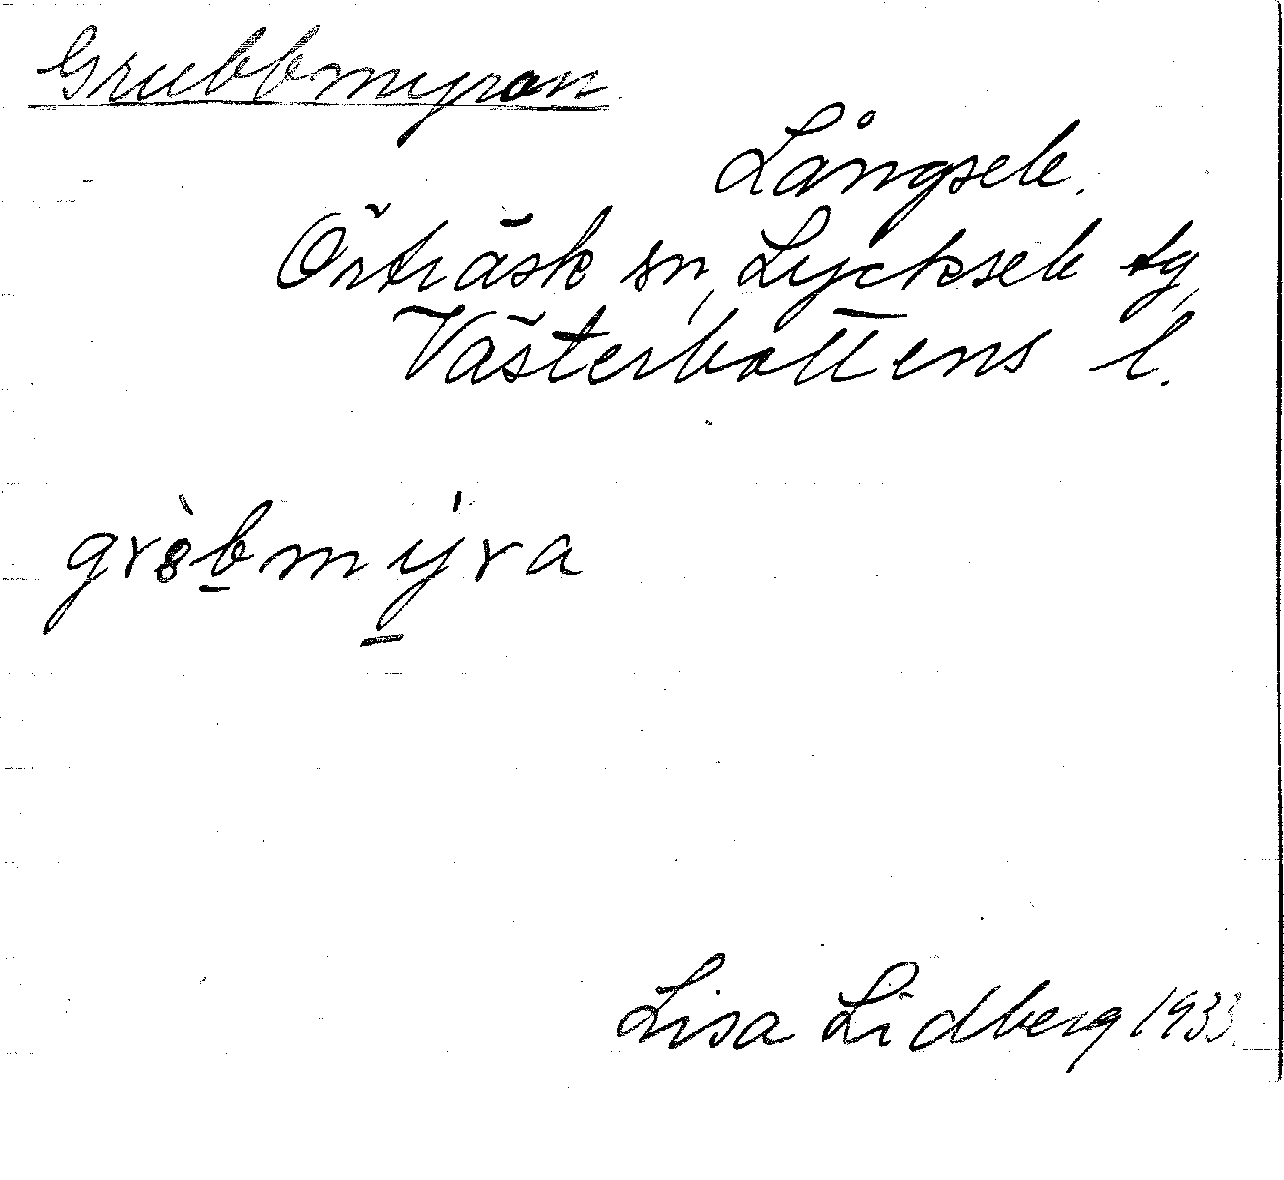 Grubbmyran
Långsele.
Örträsk sn, Lycksele tg,
Västerbottens l.
grò̤b̲mý̲ra
Lisa Lidberg 1933.